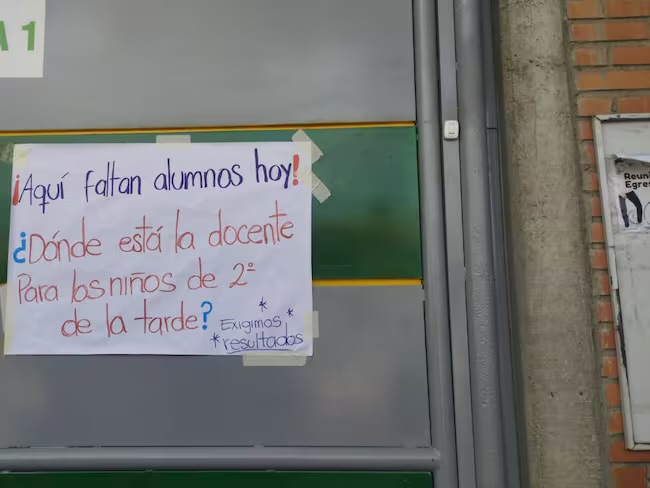 A 1
¡Aquí faltan alumnos hoy!
¿Dónde está la docente
Para los niños de 2º
de la tarde?
* Exigimos *
* resultados
Reuni
Egres